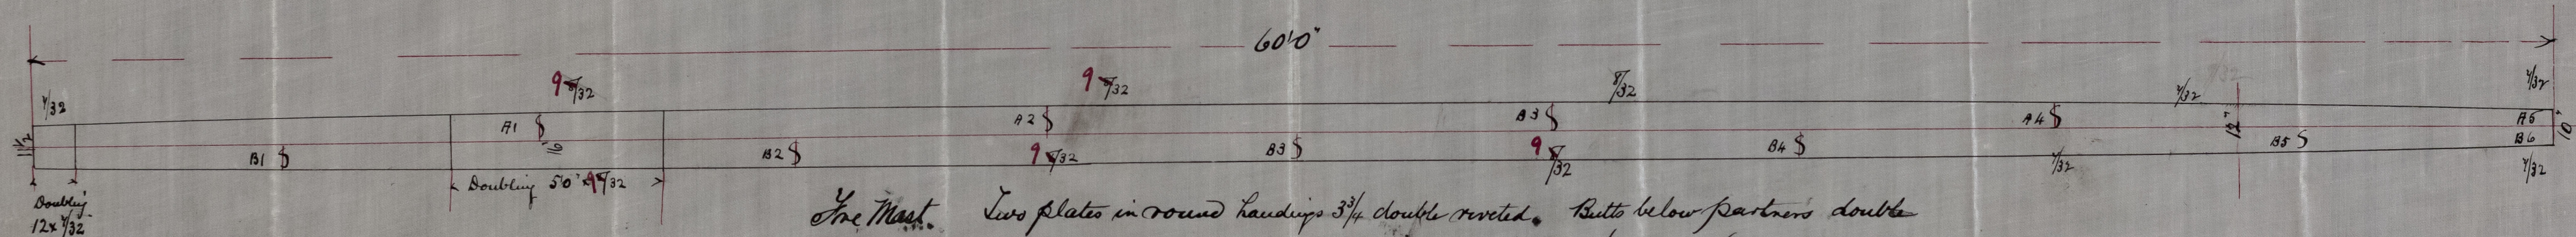 60'0"
9 8/32
9 8/32
8/32
7/32
7/32
7/32
7/32
A1
A2
A3
A4
A5
11½
16
12"
10"
B1
B2
9 8/32
B3
9 8/32
B4
7/32
B5
B6
7/32
Doubling 5'0" × 9 8/32
Doubling
12 x 7/32
Fore Mast. Two plates in round landings 3¾ double riveted. Butts below partners double